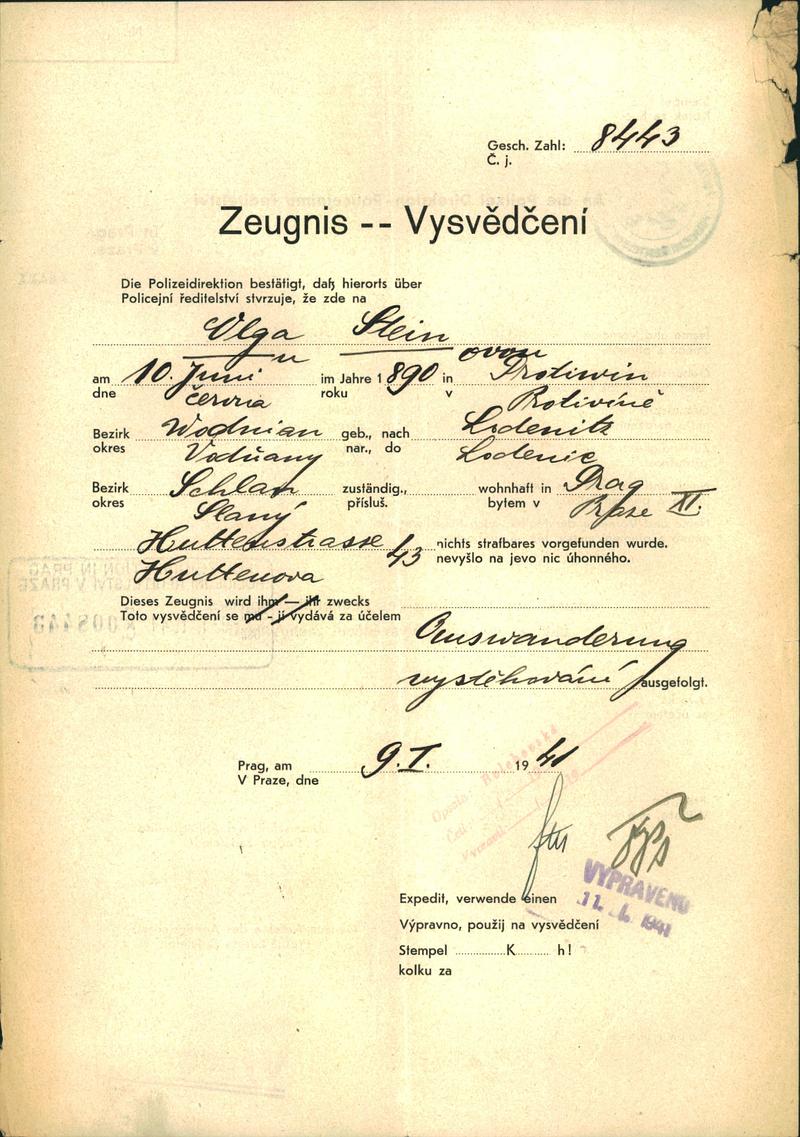 Gesch. Zahl: 8443
Č. j.
Zeugnis -- Vysvědčení
Die Polizeidirektion bestätigt, daß hierorts über
Policejní ředitelství stvrzuje, že zde na
Olga Stein
u ovou
am 10. Juni im Jahre 1890 in Protiwin
dne června roku v Protivíně
Bezirk Wodnian geb., nach Lodenitz
okres Vodňany nar., do Lodenic
Bezirk Schlan zuständig., wohnhaft in Prag
okres Slaný přísluš. bytem v Praze XI.
Huttenstrasse 43 nichts strafbares vorgefunden wurde.
Huttenova nevyšlo na jevo nic úhonného.
Dieses Zeugnis wird ihm — ihr zwecks
Toto vysvědčení se mu - jí vydává za účelem
Auswanderung
vystěhování ausgefolgt.
Prag, am 9. I. 1941
V Praze, dne
Opsala:
Četl:
Vypravil:
VYPRAVENO
11. 1941
Expedit, verwende einen
Výpravno, použij na vysvědčení
Stempel K h!
kolku za